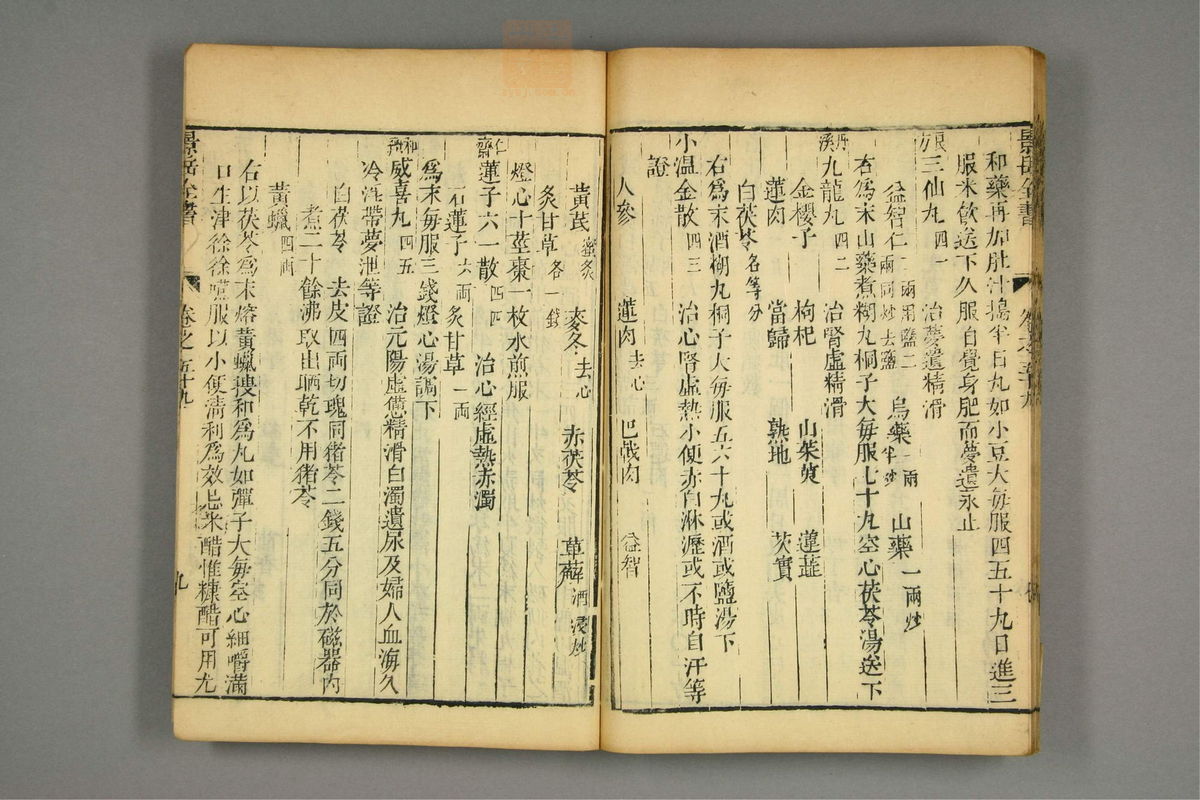 景岳全書
和藥再加肚汁搗半日丸如小豆大每服四五十丸日進三
服米飲送下久服自覺身肥而夢遺永止
良方三仙丸四一 治夢遺精滑
益智仁二兩用鹽二兩同炒去鹽 烏藥一兩半炒 山藥一兩炒
右爲末山藥煮糊丸桐子大每服七十丸空心茯苓湯送下
丹溪九龍丸四二 治腎虛精滑
金櫻子 枸杞 山茱萸 蓮蕋
蓮肉 當歸 熟地 芡實
白茯苓各等分
右爲末酒糊丸桐子大每服五六十丸或酒或鹽湯下
小温金散四三 治心腎虛熱小便赤白淋瀝或不時自汗等
證
人參 蓮肉去心 巴戟肉 益智
黃芪蜜炙 麥冬去心 赤茯苓 萆薢酒浸炒
炙甘草各一錢
燈心十莖棗一枚水煎服
仁齋蓮子六一散四四 治心經虛熱赤濁
石蓮子六兩 炙甘草一兩
爲末每服三錢燈心湯調下
和劑威喜丸四五 治元陽虛憊精滑白濁遺尿及婦人血海久
冷淫帶夢泄等證
白茯苓去皮四兩切塊同猪苓二錢五分同於磁器內
煮二十餘沸取出晒乾不用猪苓
黃蠟四兩
右以茯苓爲末熔黃蠟搜和爲丸如彈子大每空心細嚼滿
口生津徐徐嚥服以小便清利爲效忌米醋惟糠醋可用尤
景岳全書 卷之五十九 九